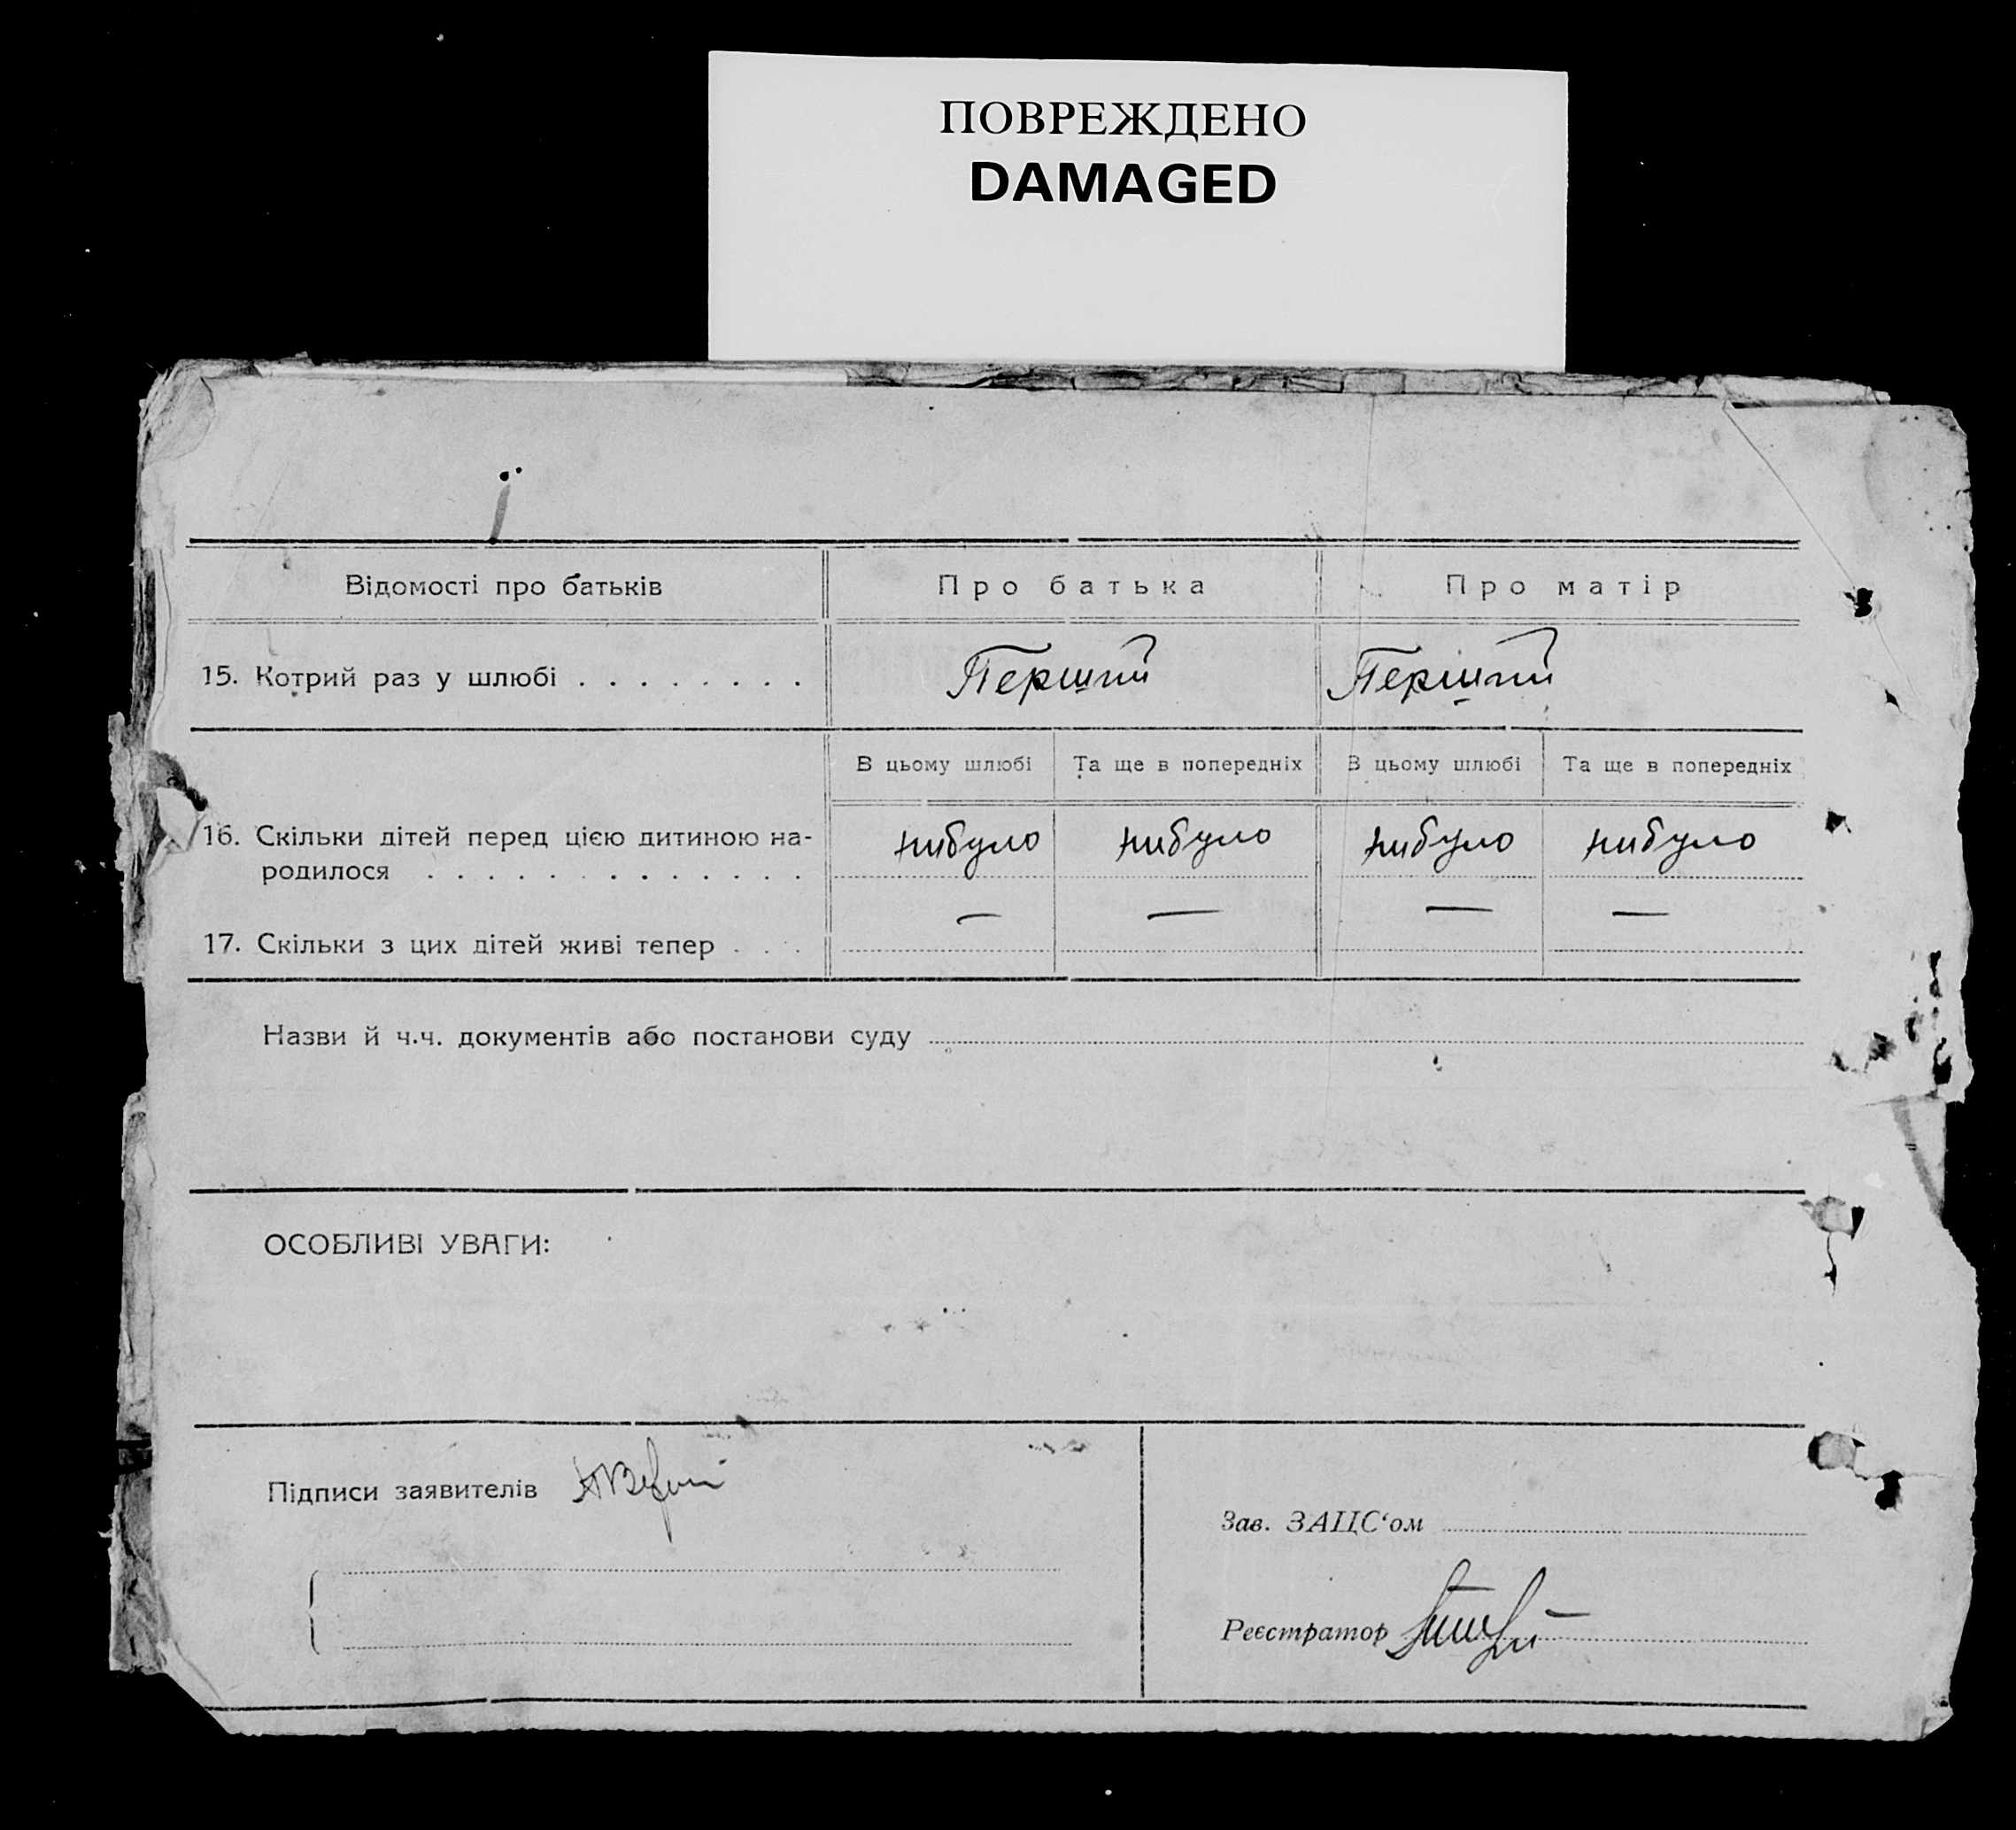 ПОВРЕЖДЕНО
DAMAGED
Відомості про батьків Про батька Про матір
15. Котрий раз у шлюбі . . . . . . . . Перший Перший
В цьому шлюбі Та ще в попередніх В цьому шлюбі Та ще в попередніх
16. Скільки дітей перед цією дитиною на- нибуло нибуло нибуло нибуло
родилося . . . . . . . . . . . . .
— — — —
17. Скільки з цих дітей живі тепер . . .
Назви й ч.ч. документів або постанови суду
ОСОБЛИВІ УВАГИ:
Підписи заявителів
Зав. ЗАЦС‘ом
Реєстратор